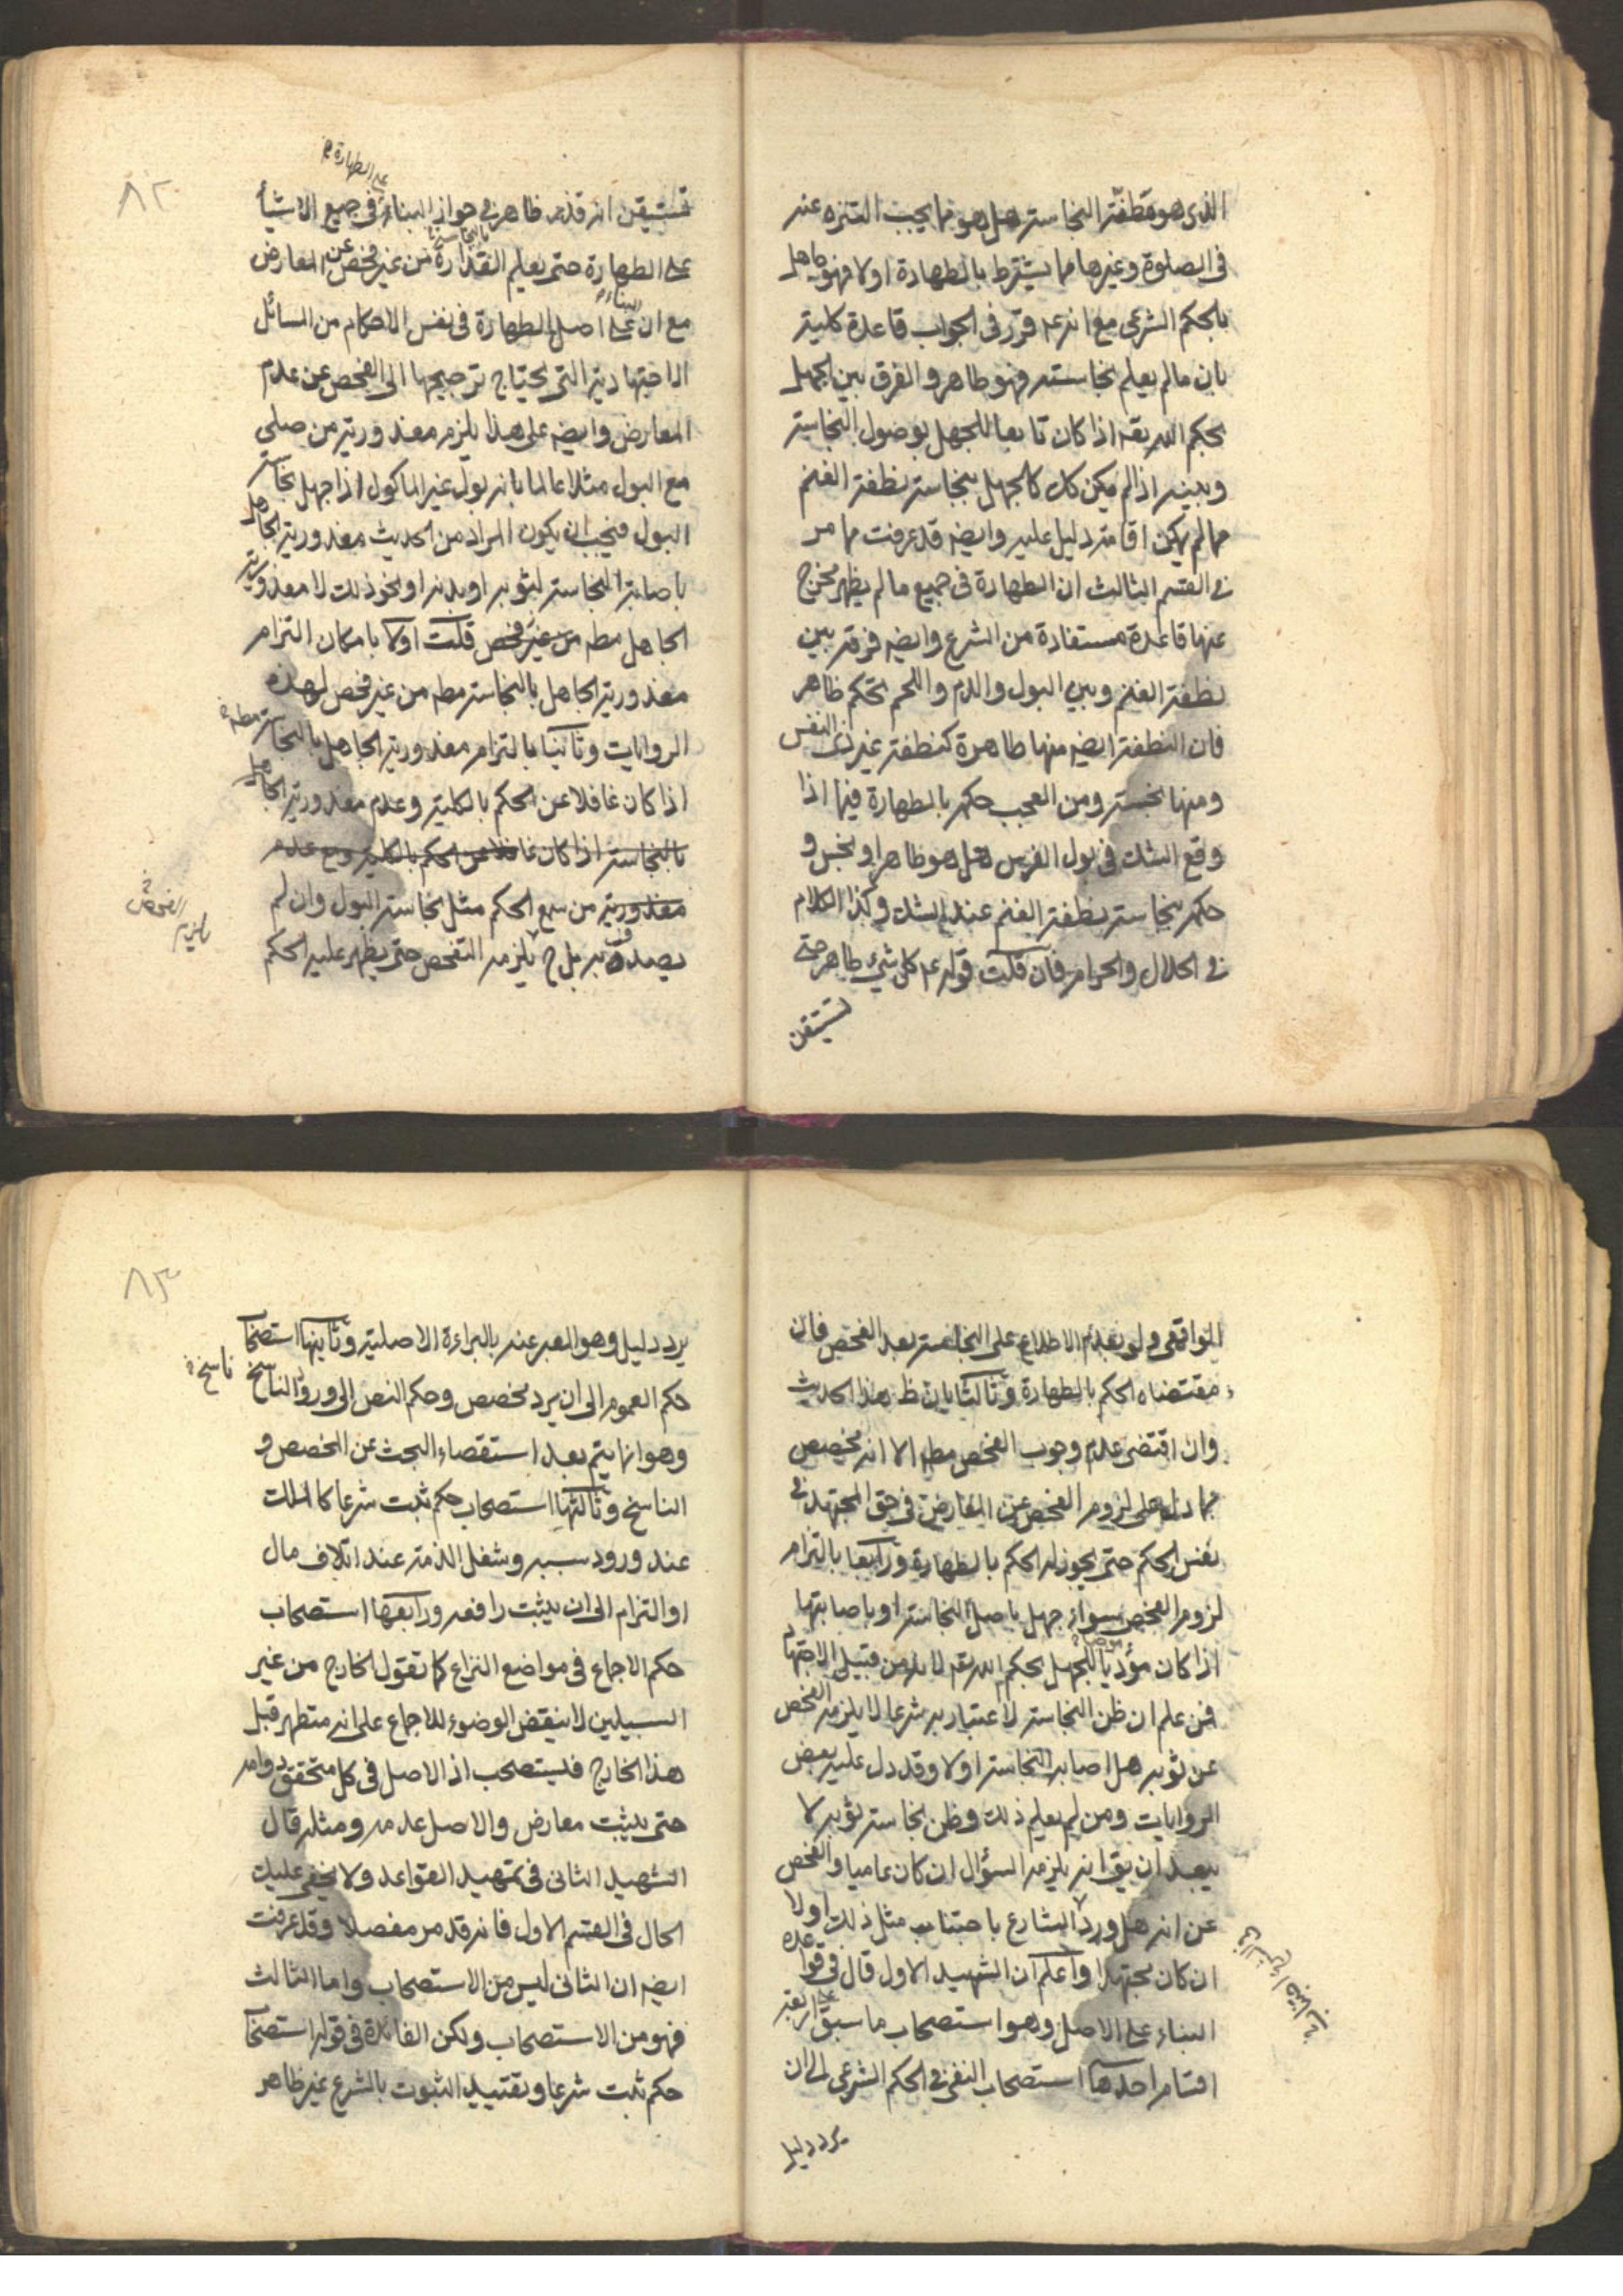 الذى هو نطفة النجاسة هل هو مما يجب التنزه عنه
فى الصلوة وغيرها مما يشترط بالطهارة اولا فهو جاهل
بالحكم الشرعى مع انه ع قرر فى الجواب قاعدة كلية
بان مالم يعلم نجاسته فهو طاهر والفرق بين الجهل
بحكم الله تعه اذا كان تابعا للجهل بوصول النجاسة
وبينه اذا لم يكن كك كالجهل بنجاسة نطفة الغنم
مما لم يمكن اقامة دليل عليه وايضه قد عرفت مما مر
فى القسم الثالث ان الطهارة فى جميع ما لم يظهر مخرج
عنها قاعدة مستفادة من الشرع وايضه فرقه بين
نطفة الغنم وبين البول والدم واللحم تحكم ظاهر
فان النطفة ايضه منها طاهرة كنطفة غير ذى النفس
ومنها نجسة ومن العجب حكمه بالطهارة فيما اذا
وقع الشك فى بول الفرس هل هو طاهر او نجس و
حكمه بنجاسة نطفة الغنم عند الشك وكذا الكلام
فى الحلال والحرام فان قلت قوله ع كل شيء طاهر حتى
تستيقن
٨٢
على الطهارة
تستيقن انه قذر ظاهر فى جواز البناء فى جميع الاشياء
بالنجاسة
على الطهارة حتى يعلم القذارة من غير فحص عن المعارض
البناء
مع ان على اصل الطهارة فى نفس الاحكام من المسائل
الاجتهادية التى يحتاج ترجيحها الى الفحص عن عدم
المعارض وايضه على هذا يلزم معذورية من صلى
مع البول مثلا عالما بانه بول غير المأكول اذا جهل نجاسة
البول فيجب ان يكون المراد من الحديث معذورية الجاهل
باصابة النجاسة لثوبه او بدنه او نحو ذلك لا معذورية
الجاهل مطه من غير فحص قلت اولا بامكان التزام
معذورية الجاهل بالنجاسة مطه من غير فحص لهذه
الروايات وثانيا بالتزام معذورية الجاهل بالنجاسة مطه
اذا كان غافلا عن الحكم بالكلية وعدم معذورية الجاهل
بالنجاسة اذا كان غافلا عن الحكم بالكلية ومع عدم
معذورية من سمع الحكم مثل نجاسة البول وان لم
يصدق به بل ح يلزمه التفحص حتى يظهر عليه الحكم
الواقعى ولو بعدم الاطلاع على النجاسة بعد الفحص فان
مقتضاه الحكم بالطهارة وثالثا بان ظ هذا الحديث
وان اقتضى عدم وجوب الفحص مطه الا انه مخصص
بما دل على لزوم الفحص عن المعارض فى حق المجتهد فى
نفس الحكم حتى يجوز له الحكم بالطهارة ورابعا بالتزام
لزوم الفحص سواء جهل باصل النجاسة او باصابتها
اذا كان مؤديا للجهل بحكم الله تعه لانه من قبيل الاجتهاد
فمن علم ان ظن النجاسة لا عتبار به شرعا لا يلزمه الفحص
عن ثوبه هل اصابه النجاسة اولا وقد دل عليه بعض
الروايات ومن لم يعلم ذلك وظن نجاسة ثوبه لا
يبعد ان يق انه يلزمه السؤال ان كان عاميا والفحص
عن انه هل ورد الشارع باجتناب مثل ذلك اولا
ان كان مجتهدا واعلم ان الشهيد الاول قال فى قواعده
البناء على الاصل وهو استصحاب ما سبق على اربعة
اقسام احدها استصحاب النفى فى الحكم الشرعى الى ان
يرد دليل
٨٣
يرد دليل وهو المعبر عنه بالبراءة الاصلية وثانيها استصحاب
حكم العموم الى ان يرد مخصص وحكم النص الى ورود الناسخ
ناسخ
وهو انما يتم بعد استقصاء البحث عن المخصص و
الناسخ وثالثها استصحاب حكم ثبت شرعا كالملك
عند ورود سببه وشغل الذمة عند اتلاف مال
او التزام الى ان يثبت رافعه ورابعها استصحاب
حكم الاجماع فى مواضع النزاع كما تقول الخارج من غير
السبيلين لا ينقض الوضوء للاجماع على انه متطهر قبل
هذا الخارج فليستصحب اذ الاصل فى كل متحقق دوامه
حتى يثبت معارض والاصل عدمه ومثله قال
الشهيد الثانى فى تمهيد القواعد ولا يخفى عليك
الحال فى القسم الاول فانه قد مر مفصلا وقد عرفت
ايضه ان الثانى ليس من الاستصحاب واما الثالث
فهو من الاستصحاب ولكن الفائدة فى قوله استصحاب
حكم ثبت شرعا وتقييد الثبوت بالشرع غير ظاهر